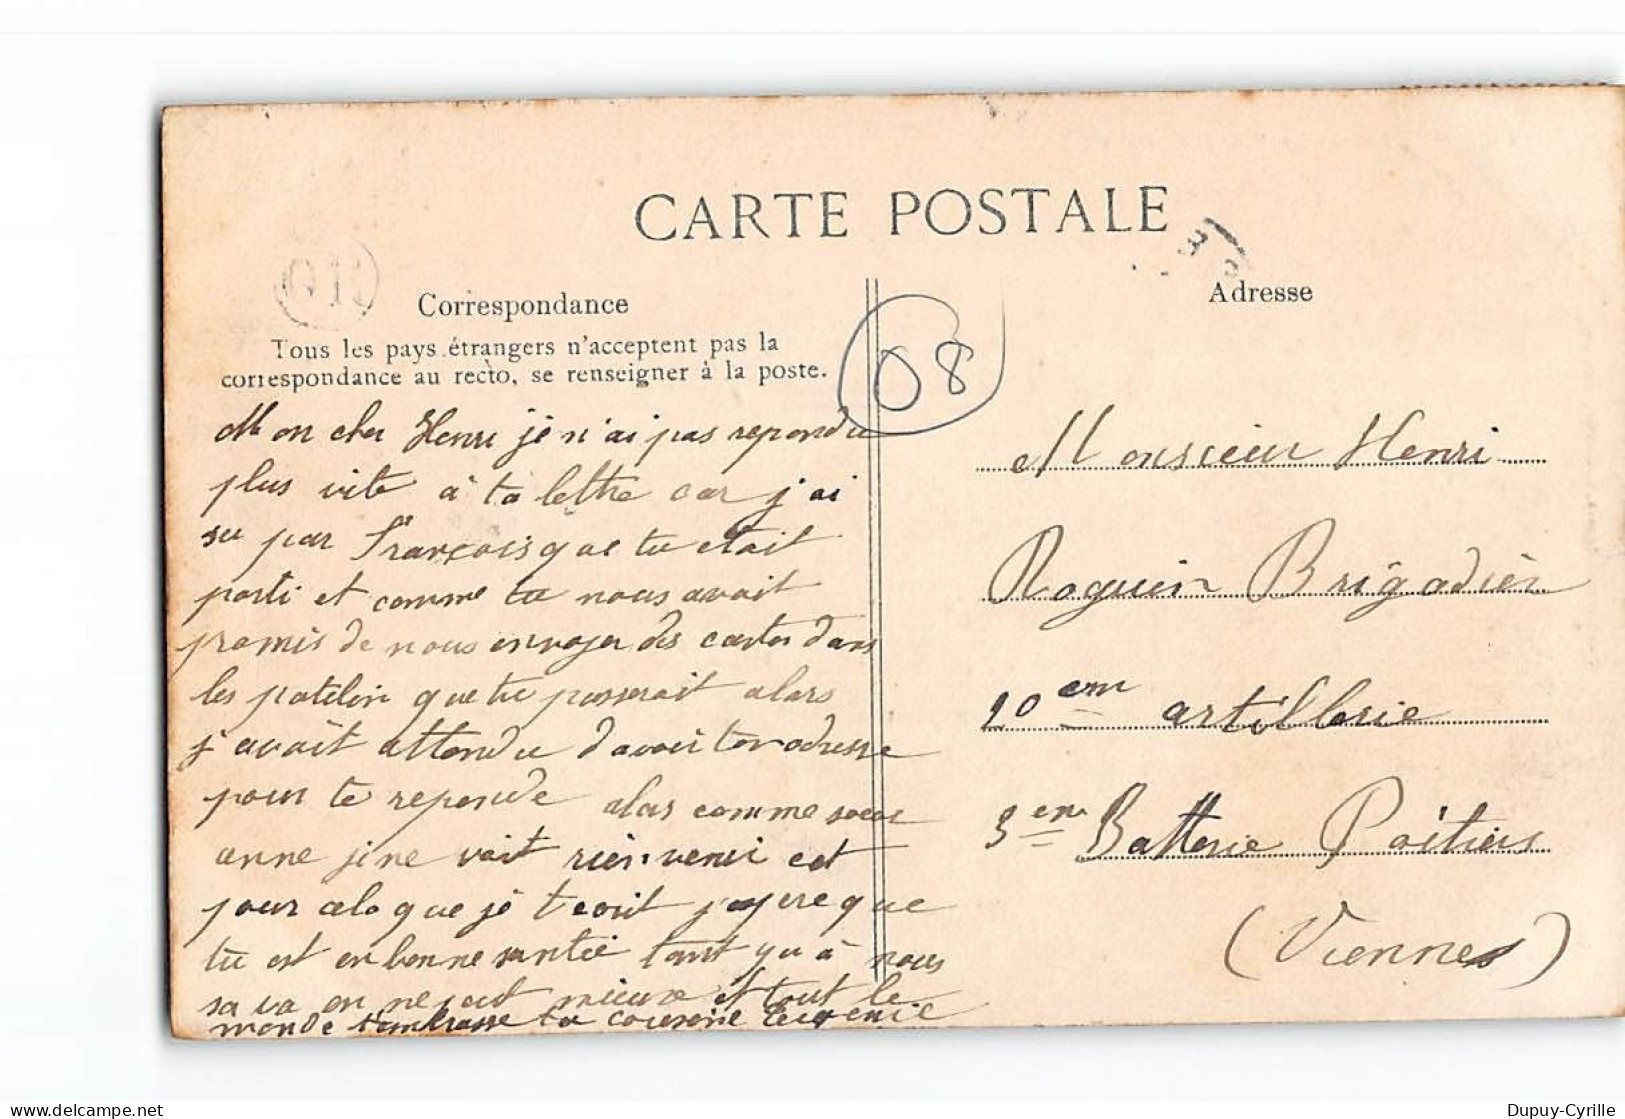 CARTE POSTALE
Correspondance
Tous les pays étrangers n'acceptent pas la
correspondance au recto, se renseigner à la poste.
Mon cher Henri je n'ai pas repondu
plus vite a ta lettre car j'ai
su par François que tu etait
parti et comme tu nous avait
promis de nous envoyer des cartes dans
les patelin que tu passerait alors
j'avait attendu d'avoir ton adresse
pour te reponde alors comme soeur
anne je ne voit rien venir cet
pour cela que je t'ecrit j'espere que
tu est en bonne santée tant qu'a nous
sa va on ne peut mieux et tout le
monde t'embrasse ta cousine Eugenie
08
Adresse
Monsieur Henri
Roguin Brigadier
20 em artillerie
3 em Batterie Poitiers
(Vienne)
Dupuy-Cyrille